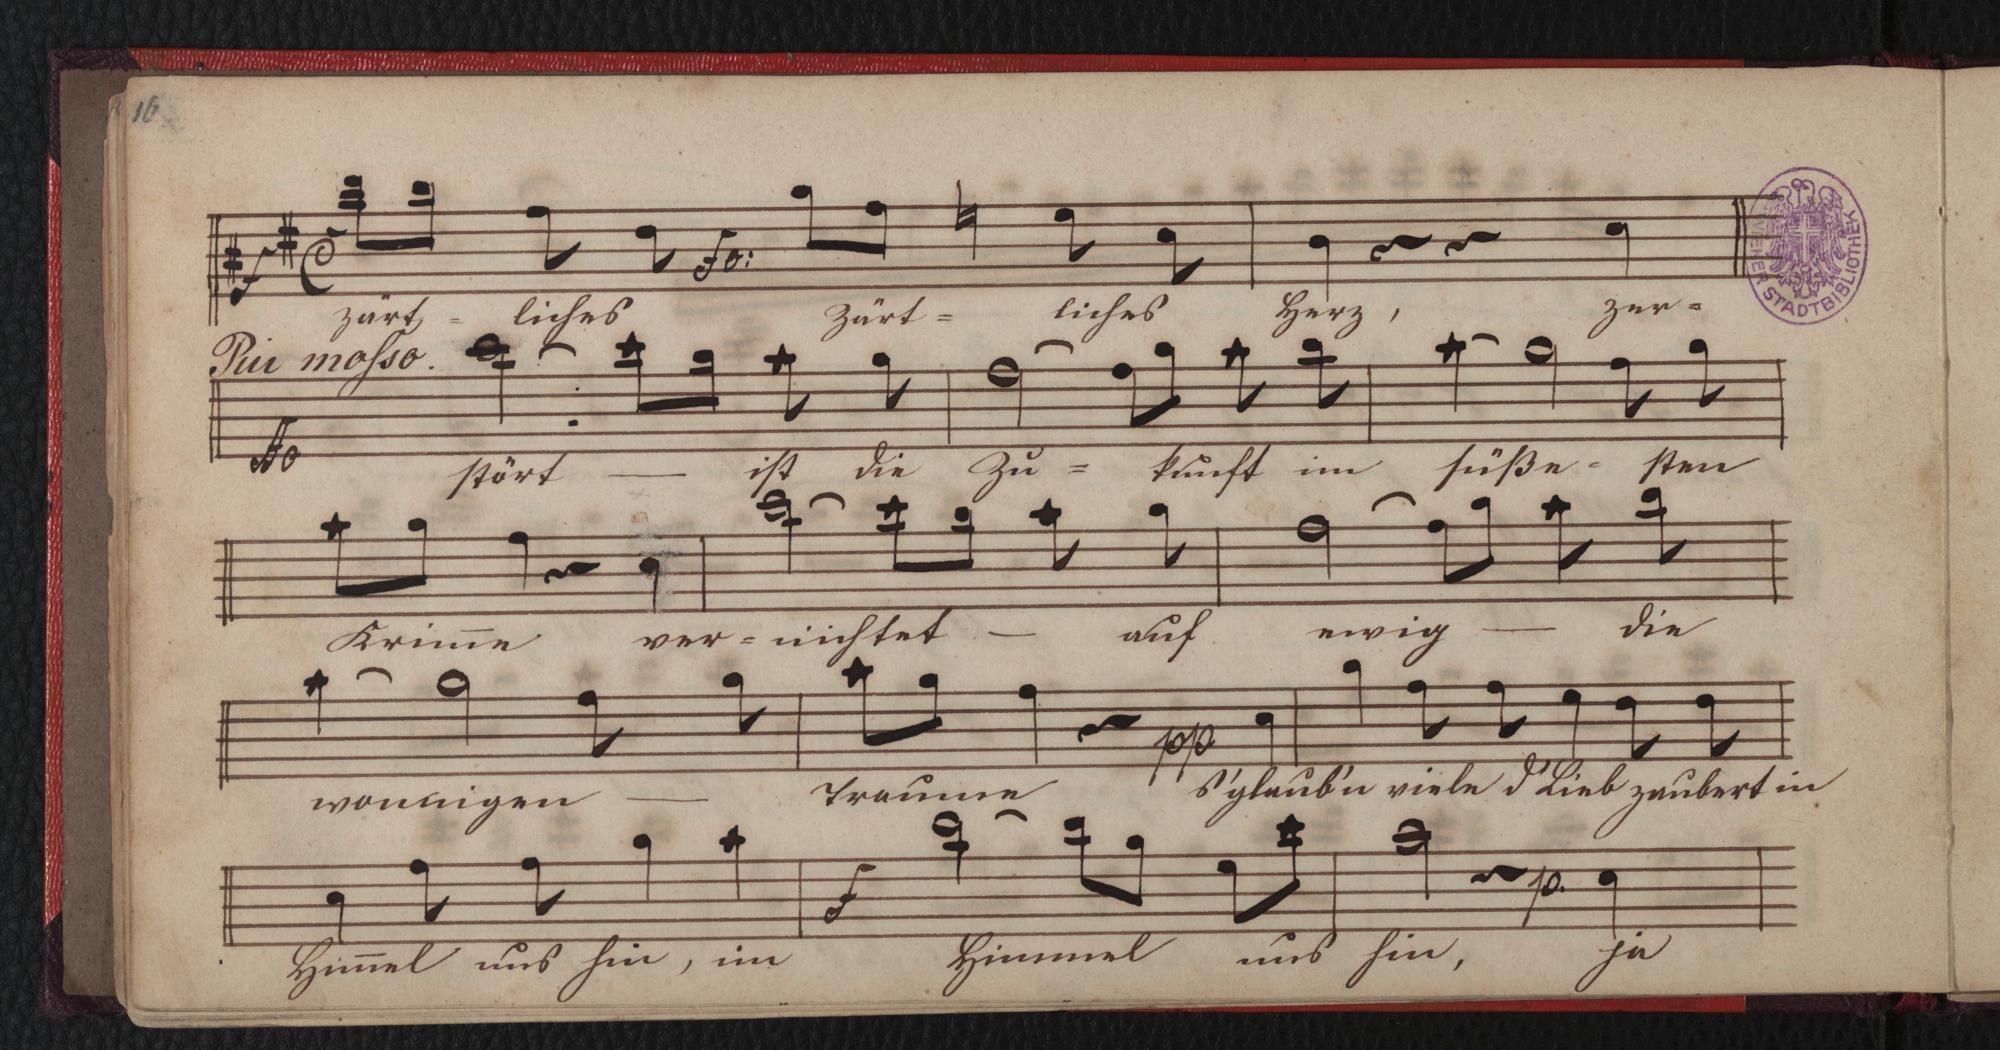 16
f fo:
zärt- liches zärt= liches Herz, zer=
Piu mosso.
stört — ist die Zu= kunft im süße- sten
Krim̄e ver=nichtet — auf ewig — die
pp
wonnigen — Traume s'glaub'n viele d'Lieb zaubert in
f p.
Him̄el uns hin, im Himmel uns hin, ja
WIENER STADTBIBLIOTHEK